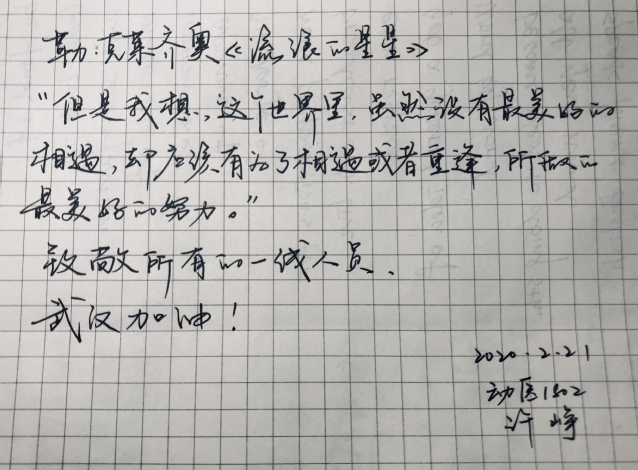 勒·克莱齐奥《流浪的星星》
“但是我想，这个世界里，虽然没有最美好的
相遇，却应该有为了相遇或者重逢，所做的
最美好的努力。”
致敬所有的一线人员、
武汉加油！
2020.2.21
动医1802
许峥